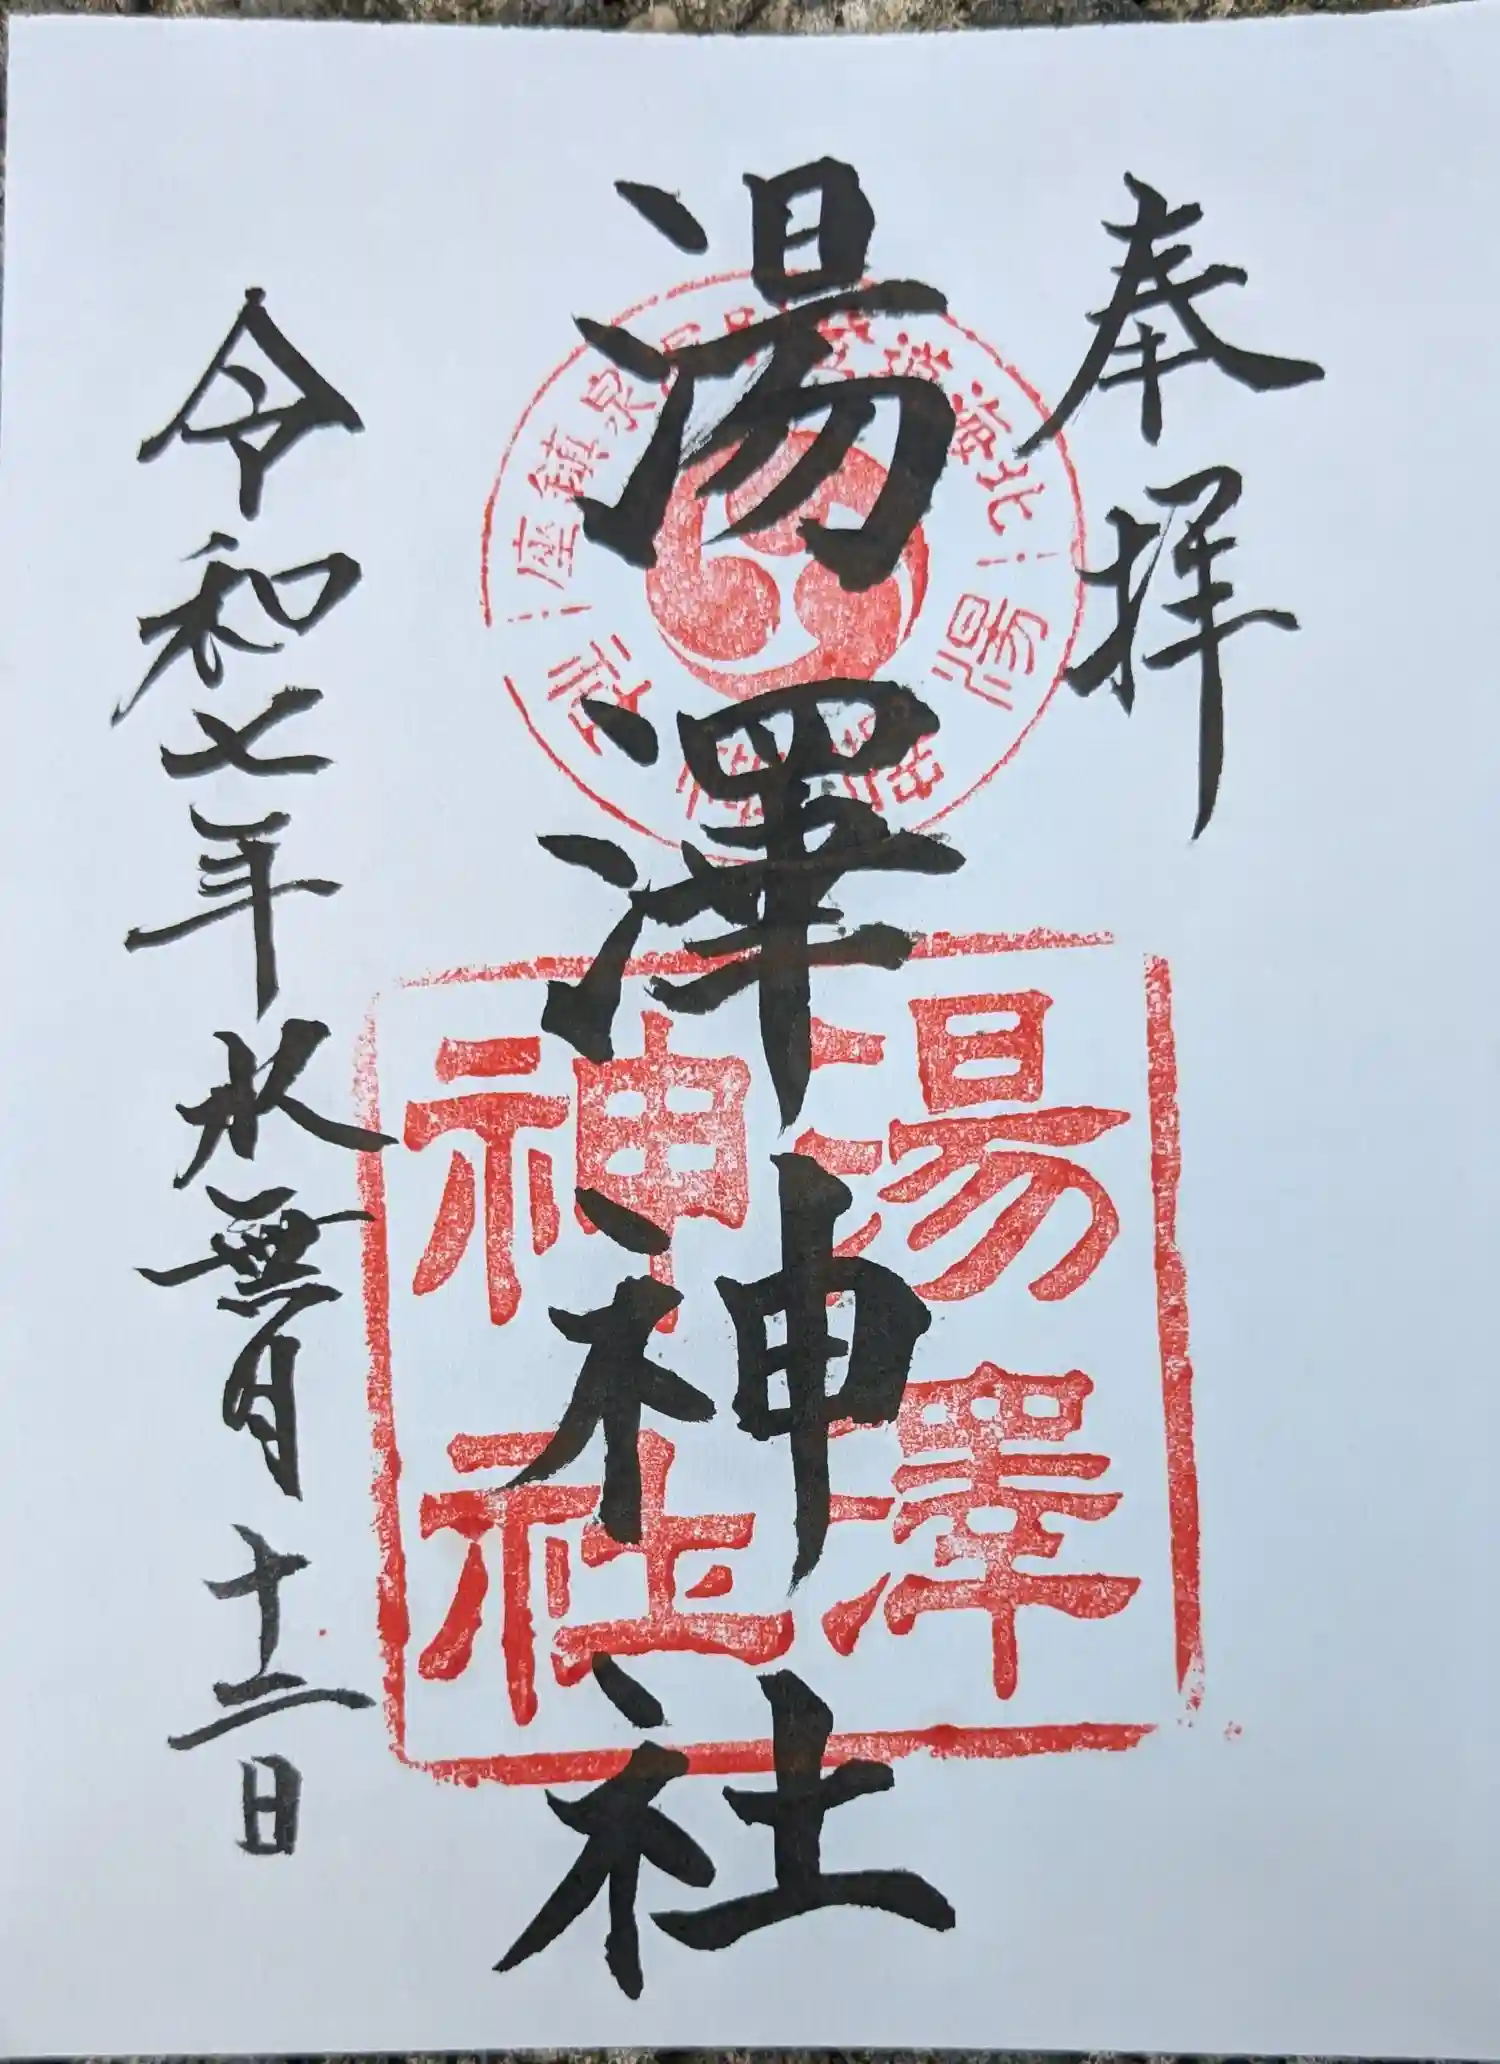 奉拝
湯澤神社
令和七年水無月十二日
湯澤
神社
北海道登別温泉鎮座
湯澤神社